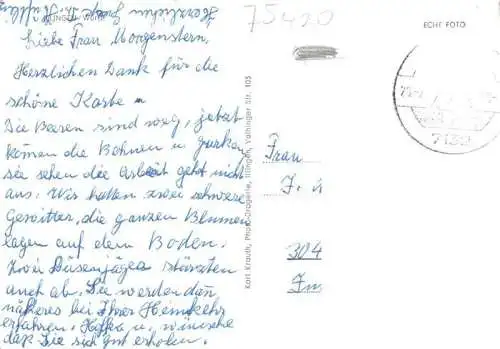 Herzlichen Gruß
Liebe Frau Morgenstern,
Herzlichen Dank für die
schöne Karte
Die Beeren sind weg, jetzt
kommen die Bohnen u. gurken
sie sehen die Arbeit geht nicht
aus. Wir hatten zwei schwere
Gewitter, die ganzen Blumen
lagen auf dem Boden.
Zwei Düsenjäger stürzten
auch ab. Sie werden dan
näheres bei Ihrer Heimkehr
erfahren. Hoffen u. wünsche
daß Sie sich gut erholen.
75420
ECHT FOTO
7139
Karl Krauth, Photo-Drogerie, Illingen, Vaihinger Str. 103
Frau
304